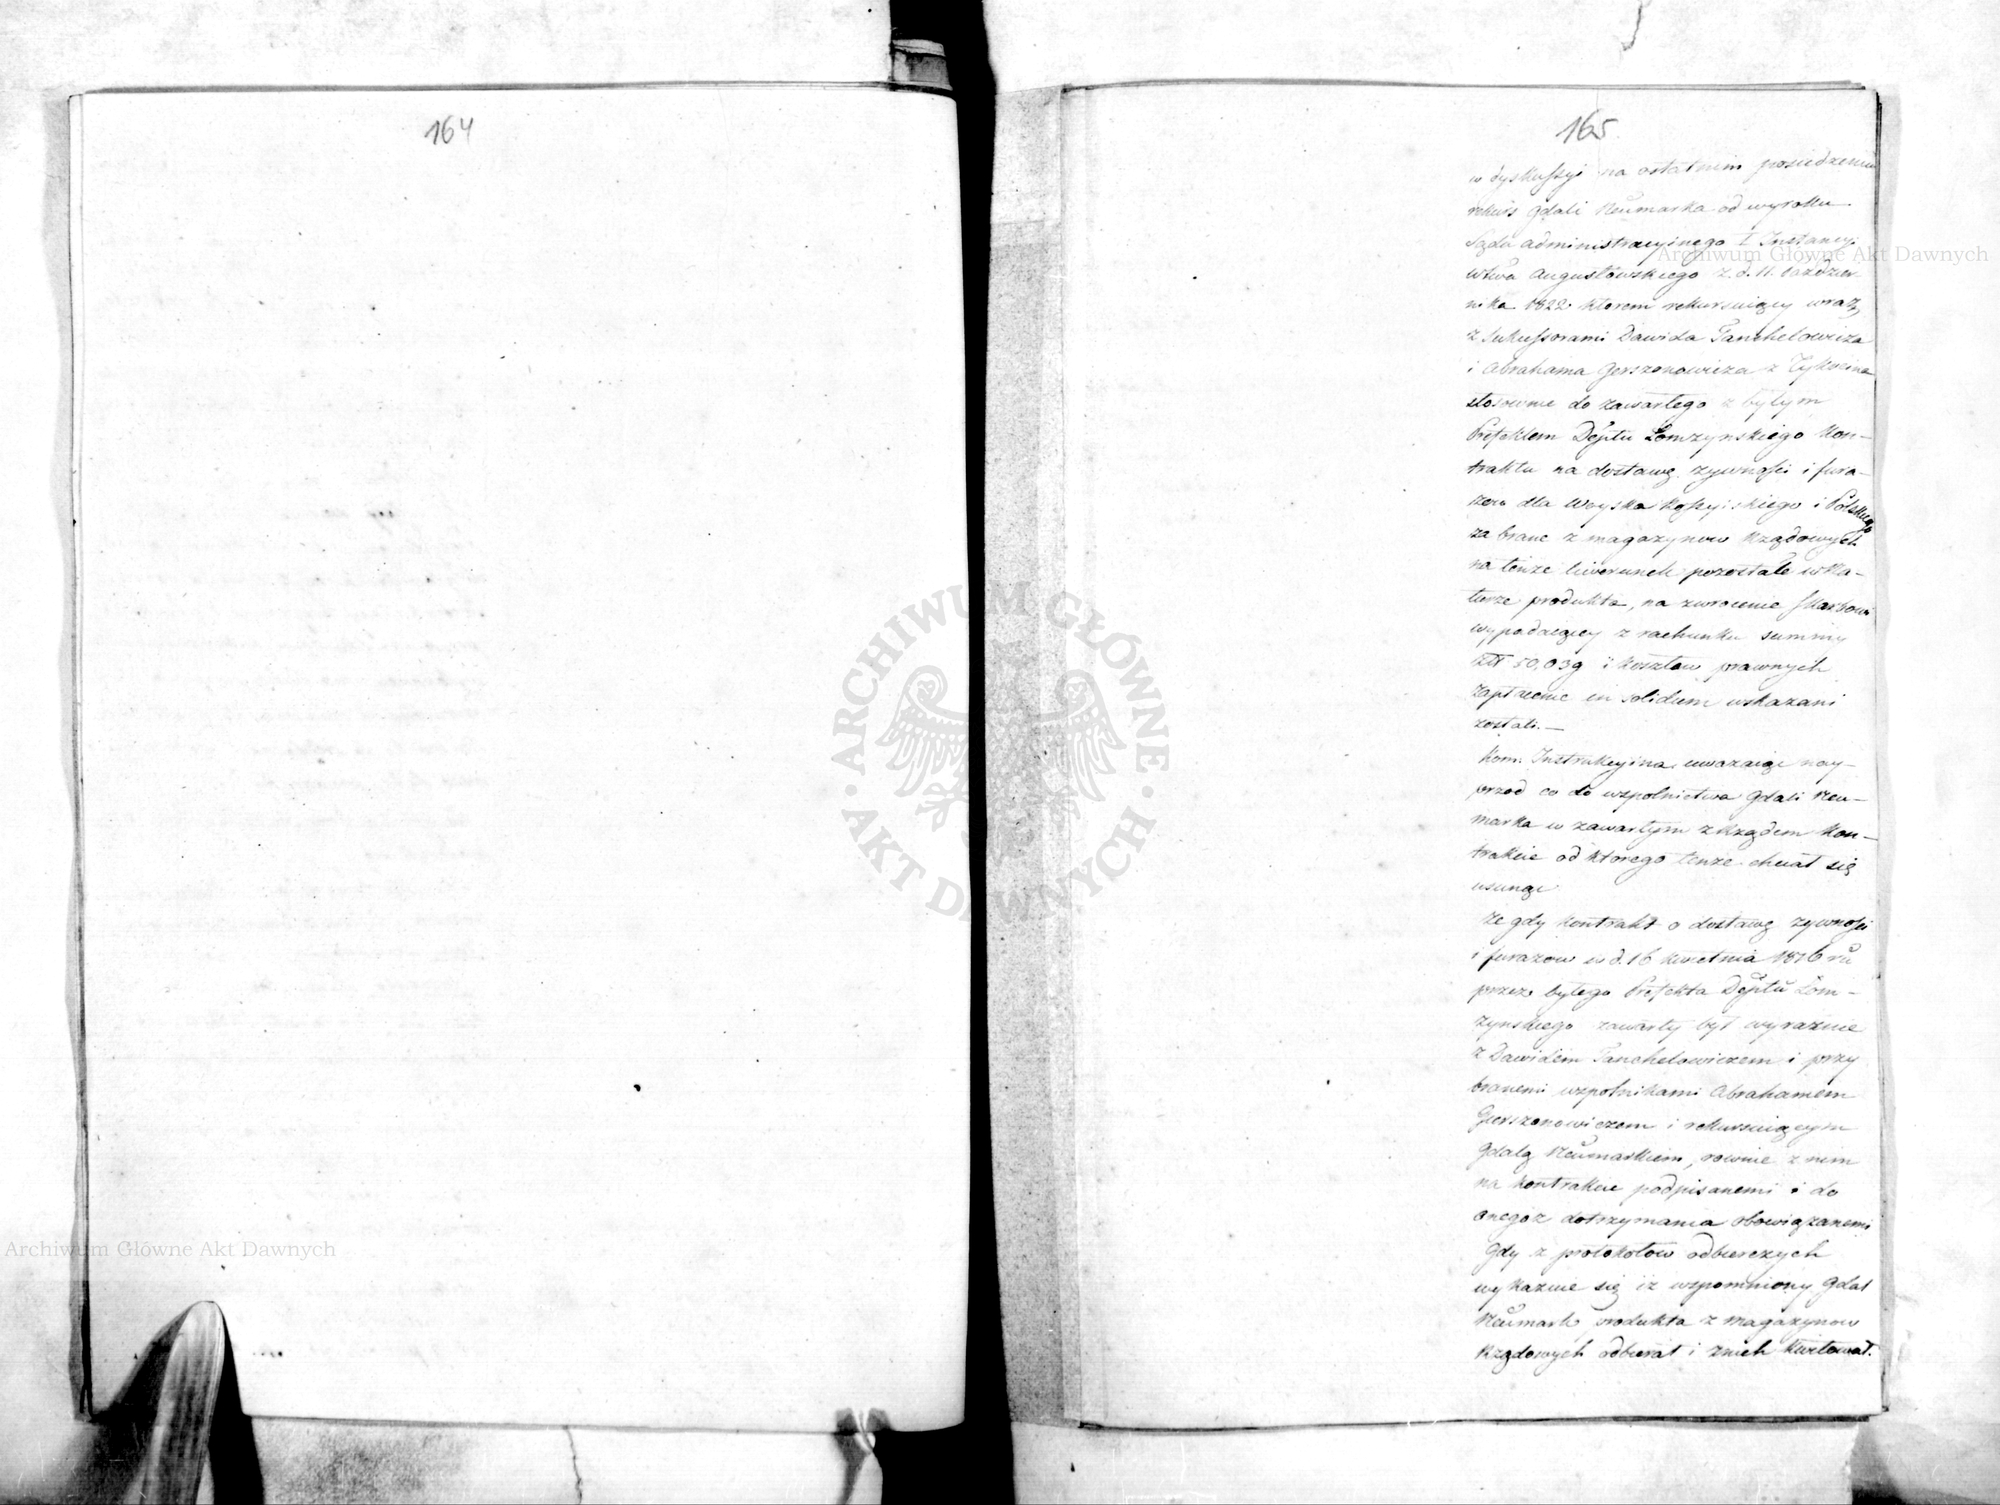 164
165
w dyskussyi na ostatnim posiedzeniu
rekurs Gdali Neumarka od wyroku
Sądu administracyjnego I Instancyi
Wtwa Augustowskiego z d. 11. Paździer-
nika 1822 ktorem rekursuiący wraz
z sukcessorami Dawida Tanchelowicza
i Abrahama Gerszonowicza z Tykocina
stosownie do zawartego z byłym
Prefektem Deptu Łomzynskiego Kon-
traktu na dostawę zywności i fura-
zow dla Woyska Rossyiskiego i Polskiego
zabrane z magazynow Rządowych
na tenze liwerunek pozostałe w na-
turze produkta, na zwrocenie Skarbowi
wypadaiącey z rachunku summy
Złł 50,039 i kosztow prawnych
zapłacenie in solidum wskazani
zostali.—
Kom. Instrukcyina uwazaiąc nay-
przod co do wspolnictwa Gdali Neu-
marka w zawartym z Rządem Kon-
trakcie od ktorego tenze chciał się
usunąć
ze gdy kontrakt o dostawę zywności
i furazow w d. 16 kwietnia 1816 ru
przez byłego Prefekta Deptu Łom-
zynskiego zawarty był wyraznie
z Dawidem Tanchelowiczem i przy
branemi wspolnikami Abrahamem
Gierszonowiczem i rekursuiącym
Gdalą Neumarkiem, rownie z nim
na kontrakcie podpisanemi i do
onegoz dotrzymania obowiązanemi
Gdy z protokołow odbierczych
wykazuie się iz wspomniony Gdal
Neumark produkta z magazynow
Rządowych odbierał i znich kwitował.
Archiwum Główne Akt Dawnych
Archiwum Główne Akt Dawnych
ARCHIWUM GŁÓWNE · AKT DAWNYCH ·